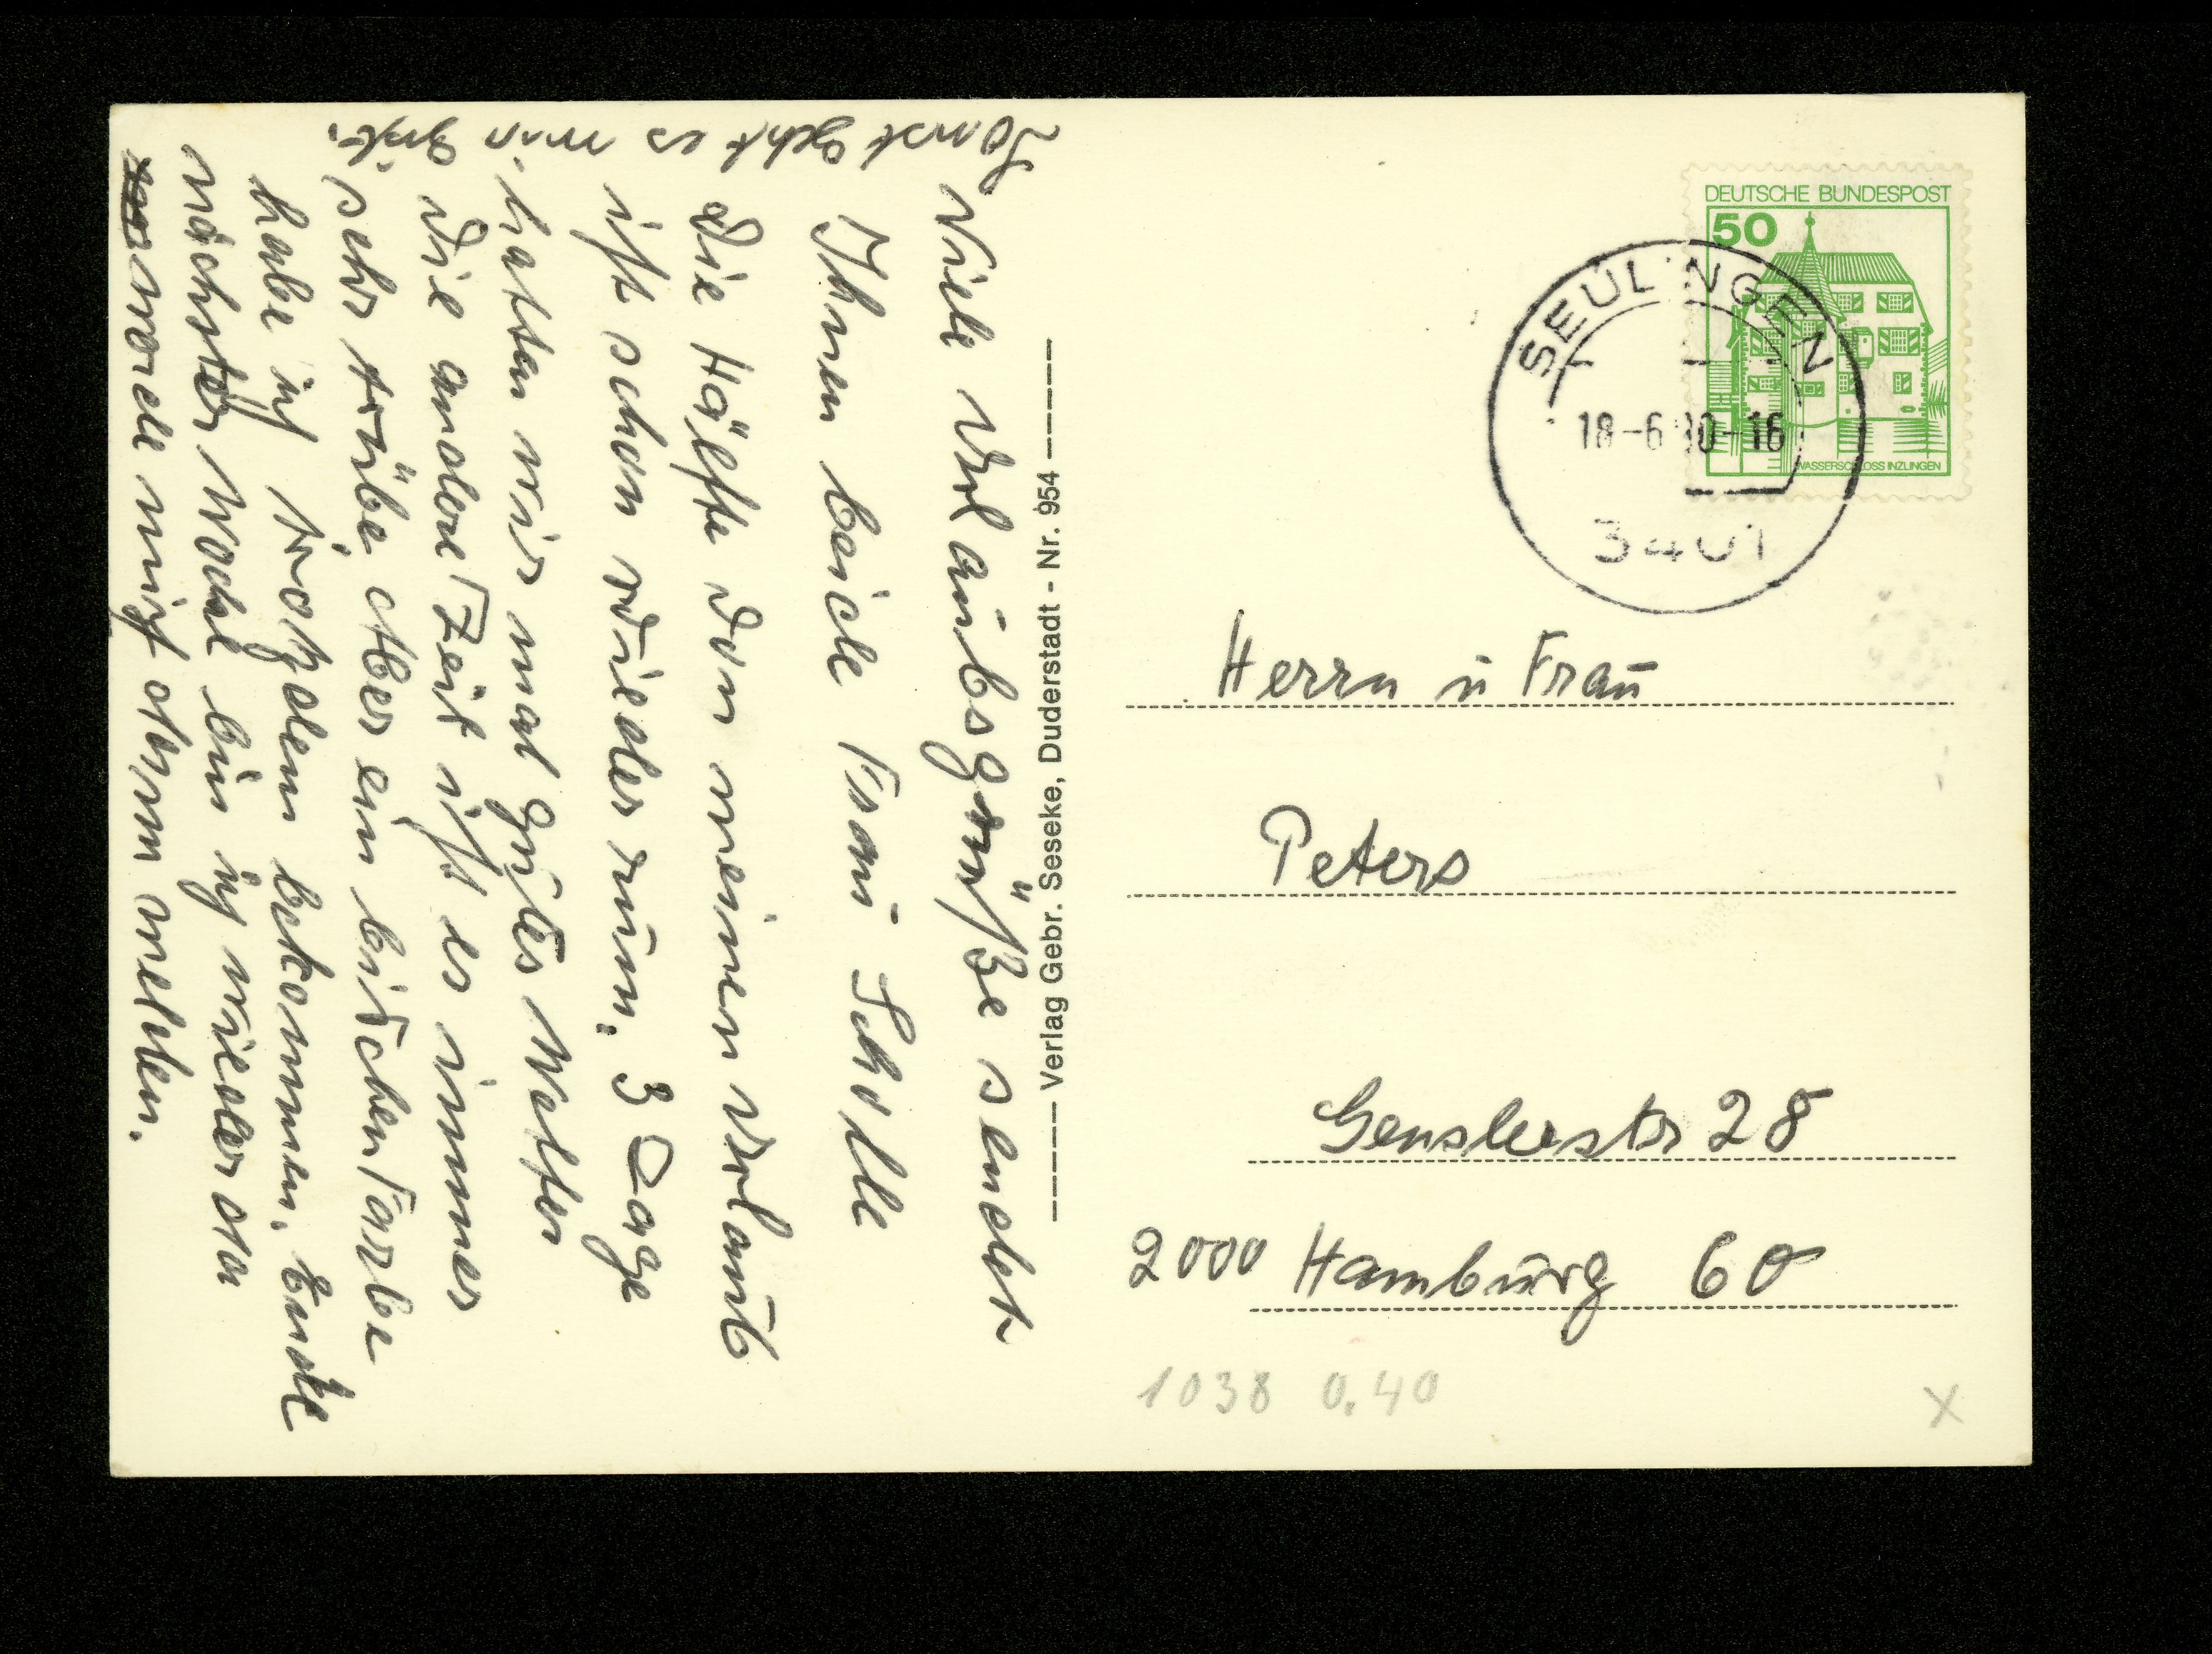 DEUTSCHE BUNDESPOST
50
WASSERSCHLOSS INZLINGEN
SEULINGEN
18-6 80-16
3401
Herrn u Frau
Peters
Genslerstr 28
2000 Hamburg 60
1038 0.40
X
Verlag Gebr. Seseke, Duderstadt - Nr. 954
Viele Urlaubsgrüße sendet
Ihnen beide Frau Scholle
Die Hälfte von meinen Urlaub
ist schon wieder rum. 3 Tage
hatten wir mal gutes Wetter
die andere Zeit ist es immer
sehr trübe aber ein bißchen Farbe
habe ich trotzdem bekommen. Ende
nächster Woche bin ich wieder da
werde mich dann melden.
Sonst geht es mir gut.